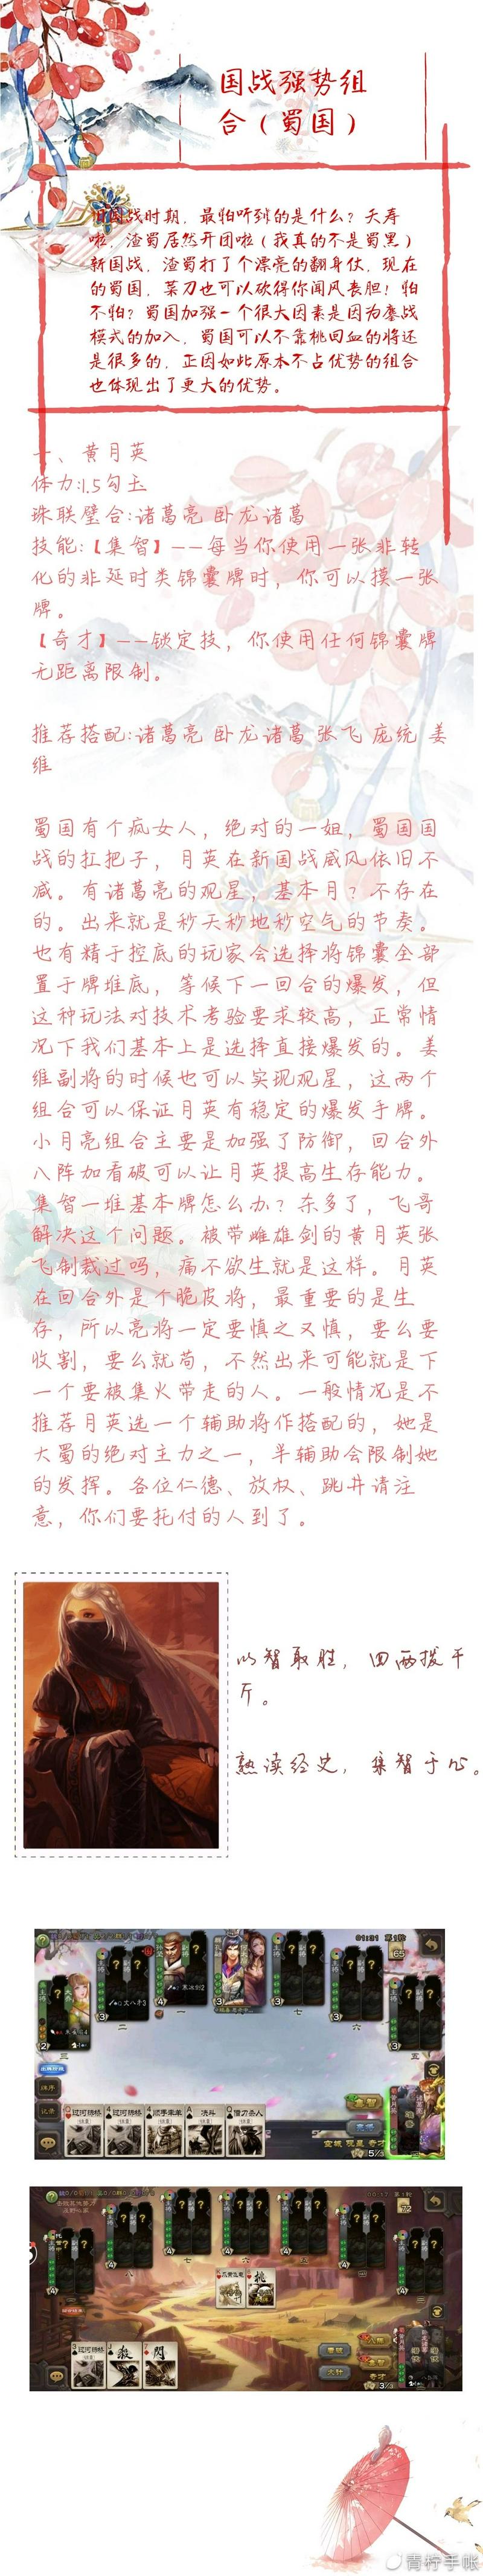 国战强势组
合（蜀国）
旧国战时期，最怕听到的是什么？天寿
啦，渣蜀居然开团啦（我真的不是蜀黑）
新国战，渣蜀打了个漂亮的翻身仗，现在
的蜀国，菜刀也可以砍得你闻风丧胆！怕
不怕？蜀国加强一个很大因素是因为鏖战
模式的加入，蜀国可以不靠桃回血的将还
是很多的，正因如此原本不占优势的组合
也体现出了更大的优势。
一、黄月英
体力:1.5勾玉
珠联璧合:诸葛亮 卧龙诸葛
技能:【集智】——每当你使用一张非转
化的非延时类锦囊牌时，你可以摸一张
牌。
【奇才】——锁定技，你使用任何锦囊牌
无距离限制。
推荐搭配:诸葛亮 卧龙诸葛 张飞 庞统 姜
维
蜀国有个疯女人，绝对的一姐，蜀国国
战的扛把子，月英在新国战威风依旧不
减。有诸葛亮的观星，基本月？不存在
的。出来就是秒天秒地秒空气的节奏。
也有精于控底的玩家会选择将锦囊全部
置于牌堆底，等候下一回合的爆发，但
这种玩法对技术考验要求较高，正常情
况下我们基本上是选择直接爆发的。姜
维副将的时候也可以实现观星，这两个
组合可以保证月英有稳定的爆发手牌。
小月亮组合主要是加强了防御，回合外
八阵加看破可以让月英提高生存能力。
集智一堆基本牌怎么办？杀多了，飞哥
解决这个问题。被带雌雄剑的黄月英张
飞制裁过吗，痛不欲生就是这样。月英
在回合外是个脆皮将，最重要的是生
存，所以亮将一定要慎之又慎，要么要
收割，要么就苟，不然出来可能就是下
一个要被集火带走的人。一般情况是不
推荐月英选一个辅助将作搭配的，她是
大蜀的绝对主力之一，半辅助会限制她
的发挥。各位仁德、放权、跳井请注
意，你们要托付的人到了。
以智取胜，四两拨千
斤。
熟读经史，集智于心。
01:31 第1轮
65
寒冰剑2
丈八矛3
一
二
三
七
六
五
牌序
记录
过河拆桥
过河拆桥
顺手牵羊
决斗
借刀杀人
集智
空城 观星 奇才
5/3
第1轮
72
八
七
六
五
桃
过河拆桥
杀
闪
集智
奇才
3/3
青柠手帐